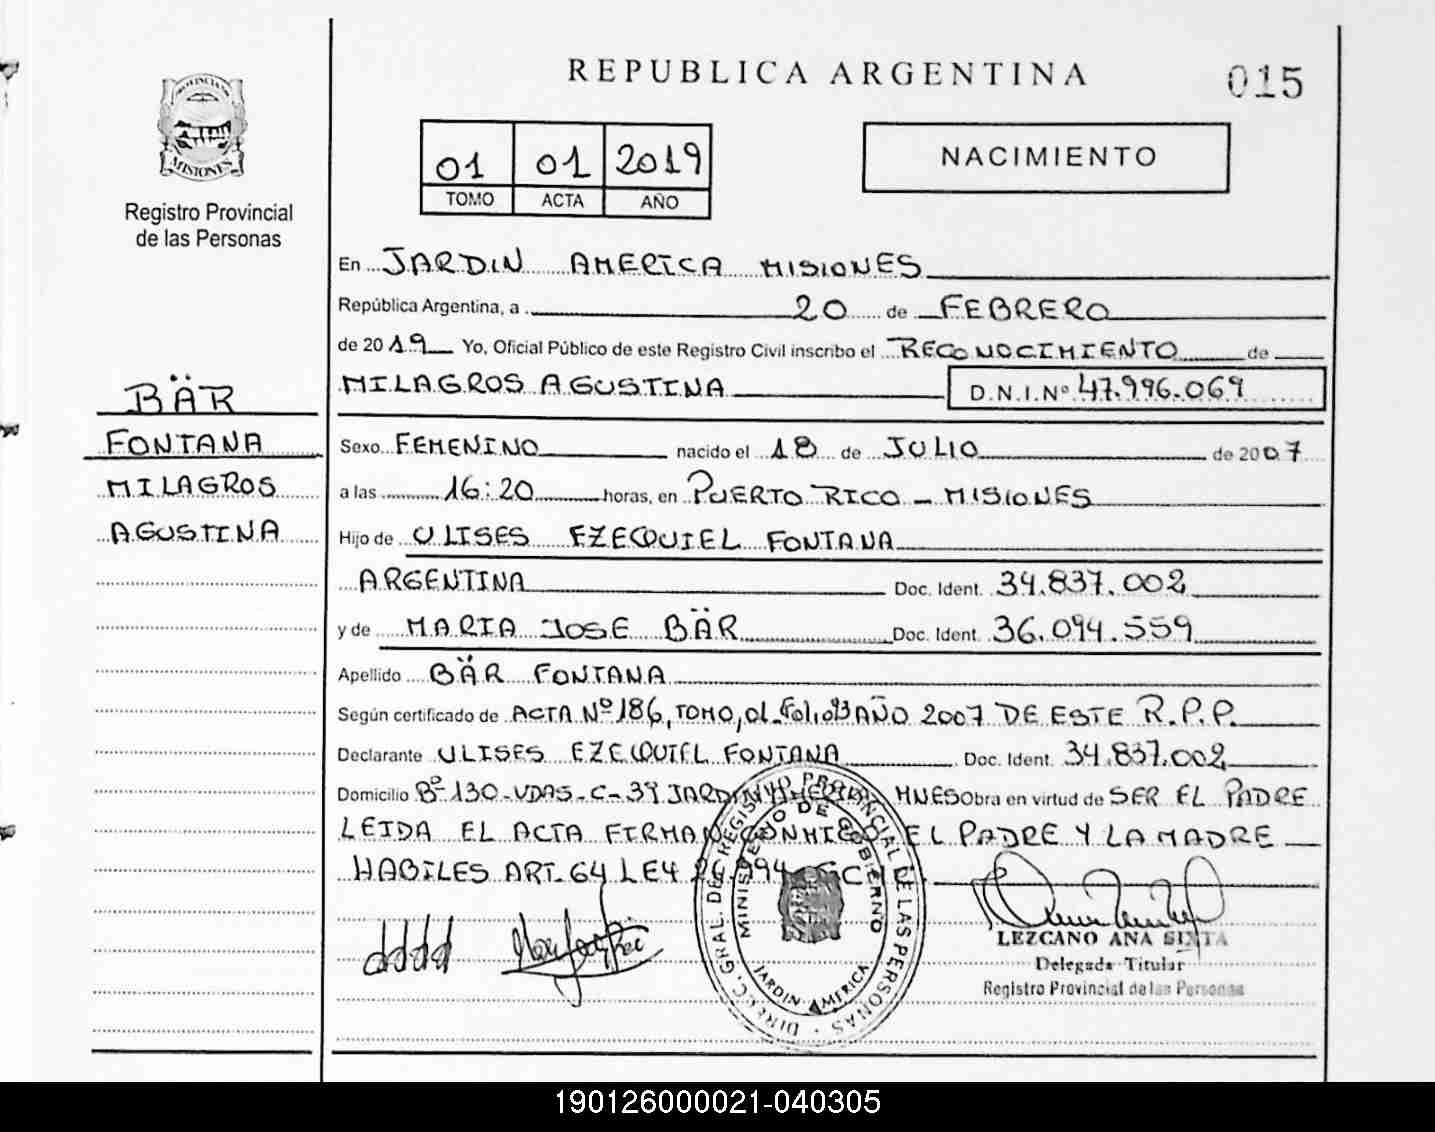 REPUBLICA ARGENTINA
015
PROVINCIA DE MISIONES
Registro Provincial
de las Personas
01 01 2019
TOMO ACTA AÑO
NACIMIENTO
En JARDIN AMERICA MISIONES
República Argentina, a 20 de FEBRERO
de 2019 Yo, Oficial Público de este Registro Civil inscribo el RECONOCIMIENTO de
MILAGROS AGUSTINA D.N.I.Nº 47.996.069
BÄR
FONTANA
MILAGROS
AGUSTINA
Sexo FEMENINO nacido el 18 de JULIO de 2007
a las 16:20 horas, en PUERTO RICO - MISIONES
Hijo de ULISES EZEQUIEL FONTANA
ARGENTINA Doc. Ident. 34.837.002
y de MARIA JOSE BÄR Doc. Ident. 36.094.559
Apellido BÄR FONTANA
Según certificado de ACTA Nº 186, TOMO, 01 Folio 93 AÑO 2007 DE ESTE R.P.P.
Declarante ULISES EZEQUIEL FONTANA Doc. Ident. 34.837.002
Domicilio Bº 130-VDAS-C-39 JARDIN AMERICA MNES Obra en virtud de SER EL PADRE
LEIDA EL ACTA FIRMAN CONMIGO EL PADRE Y LA MADRE
HABILES ART. 64 LEY 26.994
DIRECC. GRAL. DEL REGISTRO PROVINCIAL DE LAS PERSONAS
MINISTERIO DE GOBIERNO
JARDIN AMERICA
LEZCANO ANA SIXTA
Delegada Titular
Registro Provincial de las Personas
190126000021-040305